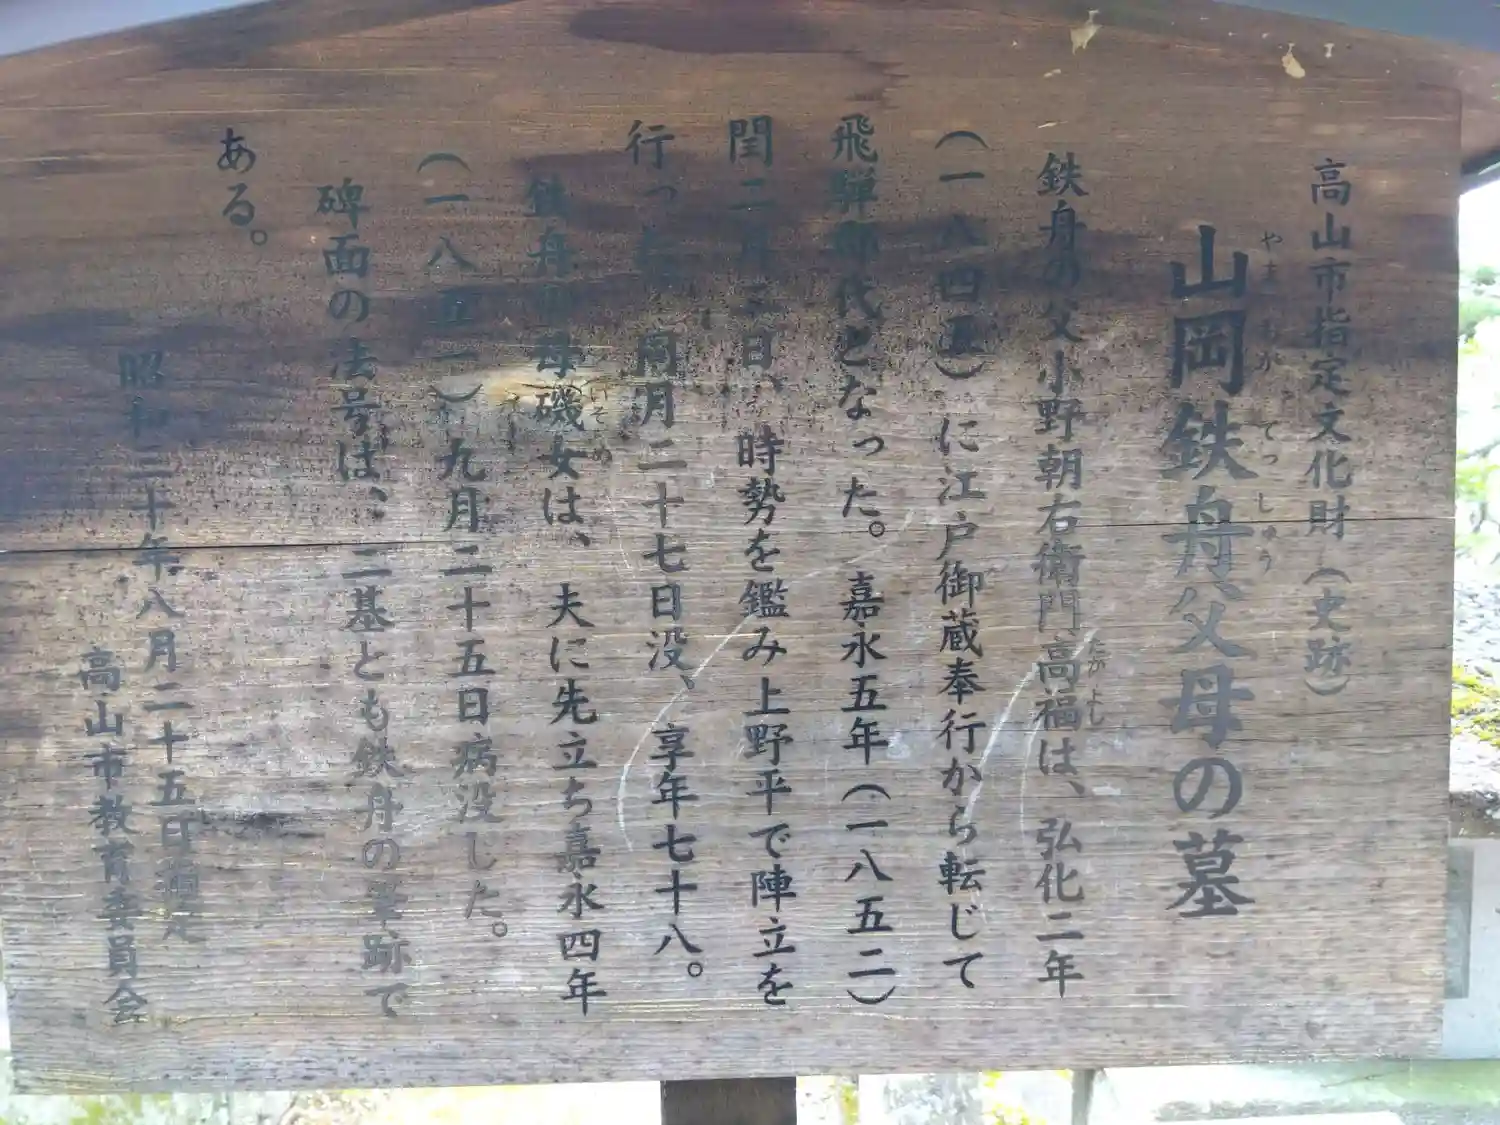 高山市指定文化財(史跡)
やま おか てっ しゅう
山岡鉄舟父母の墓
鉄舟の父小野朝右衛門高福は、弘化二年
たか よし
(一八四五)に江戸御蔵奉行から転じて
飛騨郡代となった。嘉永五年(一八五二)
閏二月二日、時勢を鑑み上野平で陣立を
行った 同月二十七日没、享年七十八。
鉄舟の母磯女は、夫に先立ち嘉永四年
いそ め
(一八五一)九月二十五日病没した。
碑面の法号は、二基とも鉄舟の筆跡で
ある。
昭和三十年八月二十五日指定
高山市教育委員会